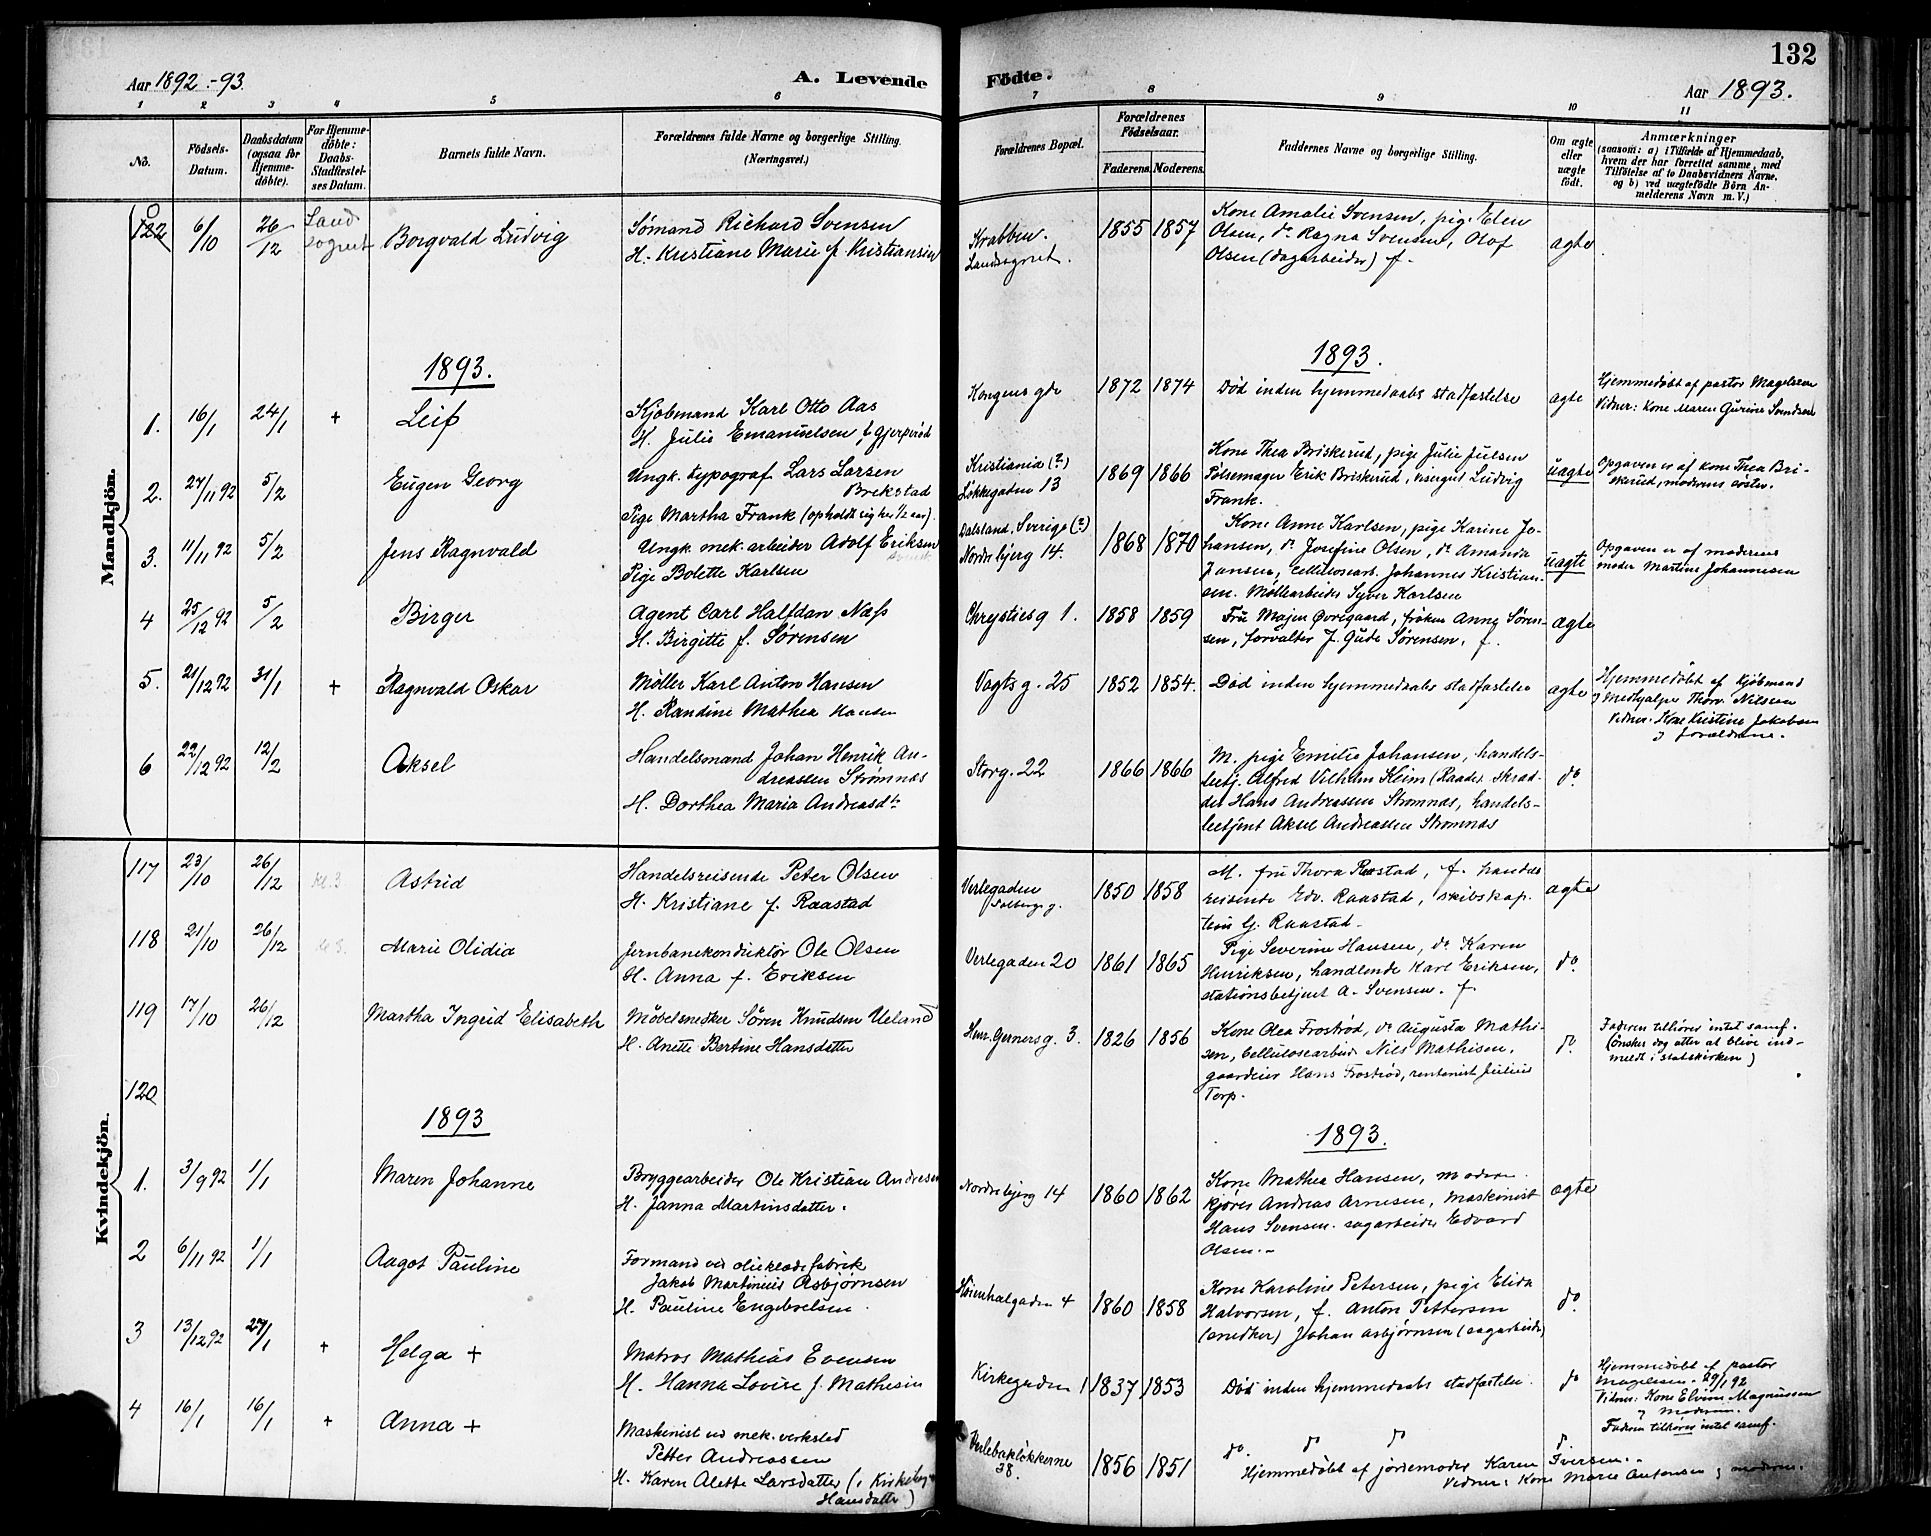 132
Aar 1892.-93. A. Levende Födte. Aar 1893.
1 2 3 4 5 6 7 8 9 10 11
No. Födsels-Datum. Daabsdatum (ogsaa for Hjemmedöbte). For Hjemmedöbte: Daabs-Stadfæstelses Datum. Barnets fulde Navn. Forældrenes fulde Navne og borgerlige Stilling. (Næringsvei.) Forældrenes Bopæl. Forældrenes Födselsaar. Faderens. Moderens. Faddernes Navne og borgerlige Stilling. Om ægte eller uægte födt. Anmærkninger (saasom: a) i Tilfælde af Hjemmedaab, hvem der har forrettet samme, med Tilföielse af to Daabsvidners Navne. og b) ved uægtefödte Börn Anmelderens Navn m. V.)
Mandkjön.
122 6/10 26/12 Land sognet Borgvald Ludvig Sømand Richard Svensen
H. Kristiane Marie f. Kristiansen
Krabben. Landsognet. 1855 1857 Kone Amalie Svensen, pige Elen
Olsen, do Ragna Svensen, Olaf
Olsen (dagarbeider) f.
ægte
1893. 1893.
1. 16/1 24/1 + Leif Kjøbmand Karl Otto Aas
H. Julie Emanuelsen f. Gjerpirød
Kongens gde 1872 1874 Død inden hjemmedaabs stadfæstelse ægte
Hjemmedøbt af pastor Magelsen
Vidner: Kone Maren Gurine Svendsen
2. 27/11 92 5/2 Eugen Georg Ungk. typograf Lars Larsen
Brekstad
Pige Martha Frank (opholdt sig her 1/2 aar).
Kristiania (?)
Løkkegaden 13 1869 1866 Kone Thea Briskerud, pige Julie Juelsen
Pølsemager Erik Briskerud, visergut Ludvig
Frank.
uægte Opgaven er af kone Thea Bri-
skerud, moderens søster.
3. 11/11 92 5/2 Jens Ragnvald Ungk. mek. arbeider Adolf Eriksen
Pige Bolette Karlsen
Dalsland, Sverige (?)
Nordre bjerg 14. 1868 1870 Kone Anne Karlsen, pige Karine Jo-
hansen, do Josefine Olsen, do Amanda
Jansen, Cellulosearb. Johannes Kristian-
sen. Møllearbeider Syver Karlsen
uægte Opgaven er af moderens
moder Martine Johannesen
4 25/12 92 5/2 Birger Agent Carl Halfdan Næss
H. Birgitte f. Sørensen
Chrystiesg 1. 1858 1859 Fru Majen Øvregaard, frøken Anna Søren-
sen, forvalter J. Gude Sørensen, f.
ægte
5. 21/12 92 31/1 + Ragnvald Oskar Møller Karl Anton Hansen
H. Randine Mathea Hansen
Vogtsg. 25 1852 1854. Død inden hjemmedaabs stadfæstelse ægte
Hjemmedøbt af Kjøbmand
og Medhjælper Thorv. Nilsen
Vidner: Kone Kristine Jakobsen
og forældrene.
6 22/12 92 12/2 Aksel Handelsmand Johan Henrik An-
dreassen Strømnæs
H. Dorthea Maria Andreasdtr
Storg. 22 1866 1866 M. pige Emilie Johansen, handels-
betj. Alfred Vilhelm Kleim (Raade). skræd-
der Hans Andreassen Strømnæs, handels-
betjent Aksel Andreassen Strømnæs
do.
Kvindekjön.
117 23/10 26/12 kl. 3 Astrid Handelsreisende Peter Olsen
H. Kristiane f. Raastad
Verlegaden
Solbergs g. 1850 1858 M. fru Thora Raastad, f. handels
reisende Edv. Raastad, skibskap-
tein G. Raastad.
ægte
118 21/10 26/12 kl 3. Marie Olidia Jernbanekonduktør Ole Olsen
H. Anna f. Eriksen
Verlegaden 20 1861 1865 Pige Severine Hansen, do Karen
Henriksen, handlende Karl Eriksen,
stationsbetjent A. Svensen. f
do.
119 17/10 26/12 Martha Ingrid Elisabeth Møbelsnedker Søren Knudsen Ueland
H. Anette Bertine Hansdatter
Henr. Gernersg. 3. 1826 1856 Kone Olea Frostrød, do Augusta Mathi-
sen, Cellulosearbeid. Nils Mathisen,
gaardeier Hans Frostrød, rentenist Julius
Torp.
do. Faderen tilhører intet samf.
(Ønsker dog atter at blive ind-
meldt i statskirken)
120
1893 1893.
1. 3/9 92 1/1 Maren Johanne Bryggearbeider Ole Kristian Andresen
H. Janna Martinsdatter.
Nordrebjerg 14 1860 1862 Kone Mathea Hansen, moderen
kjører Andreas Arnesen, Maskinist
Hans Svensen. sagarbeider Edvard
Olsen.-
ægte
2 6/11 92 1/1 Aagot Pauline Formand ved oliekledefabrik
Jakob Martinius Asbjørnsen
H. Pauline Engebretsen
Høienhalgaden 4 1860 1858 Kone Karoline Petersen, pige Elida
Halvorsen, f. Anton Pettersen
(snedker) Johan Asbjørnsen (sagarbeider)
do.
3 13/12 92 27/1 + Helga + Matros Mathias Evensen
H. Hanna Lovise f. Mathesen
Kirkegaden 1 1837 1853 Død inden hjemmedaabs stadfæstelse do
Hjemmedøbt af pastor
Magelssen. 29/1 92
Vidner: Kone Elvine Magnussen
og Moderen.
Faderen tilhører intet samf.
4 16/1 16/1 + Anna + Maskinist ved mek. verksted
Petter Andreassen
H. Karen Alette Larsdatter (i Kirkebog
Hansdatter)
Verlebakløkkerne
38. 1856 1851 do. do do do.
Hjemmedøbt af jordemoder Karen Iversen.-
Vidner: Kone Marie Antonsen og moderen.